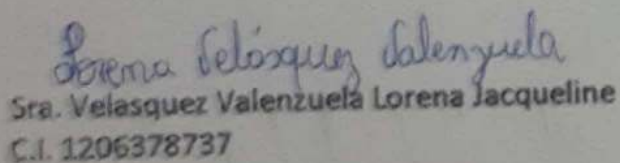 Lorena Velásquez Valenzuela
Sra. Velasquez Valenzuela Lorena Jacqueline
C.I. 1206378737